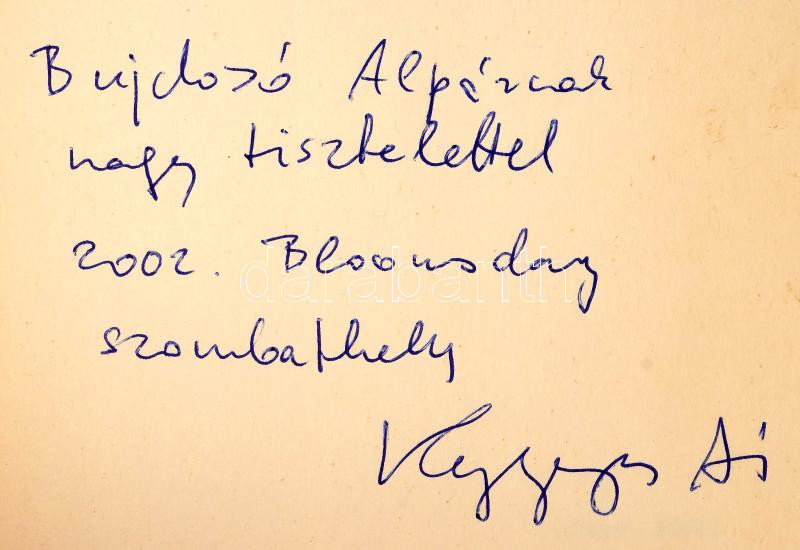 Bujdosó Alpárnak
nagy tisztelettel
2002. Bloomsday
szombathely
darabanth